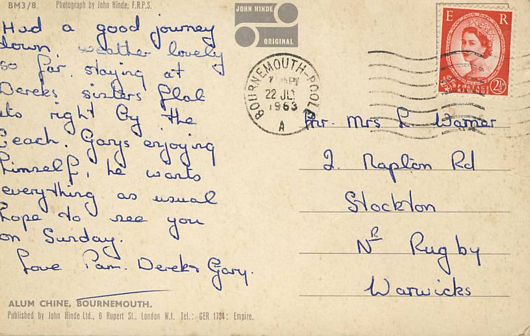 BM3/8. Photograph by John Hinde, F.R.P.S.
Had a good journey
down, weather lovely
so far. staying at
Dereks sisters flat
its right by the
beach. Garys enjoying
himself, he wants
everything as usual
hope to see you
on Sunday.
Love Pam. Derek Gary.
ALUM CHINE, BOURNEMOUTH.
Published by John Hinde Ltd., 6 Rupert St., London W.1. Tel.: GER 1734: Empire.
JOHN HINDE
ORIGINAL
BOURNEMOUTH-POOLE
22 JLY
1963
A
E R
2½
Mr. Mrs L Warner
2. Napton Rd
Stockton
NR Rugby
Warwicks